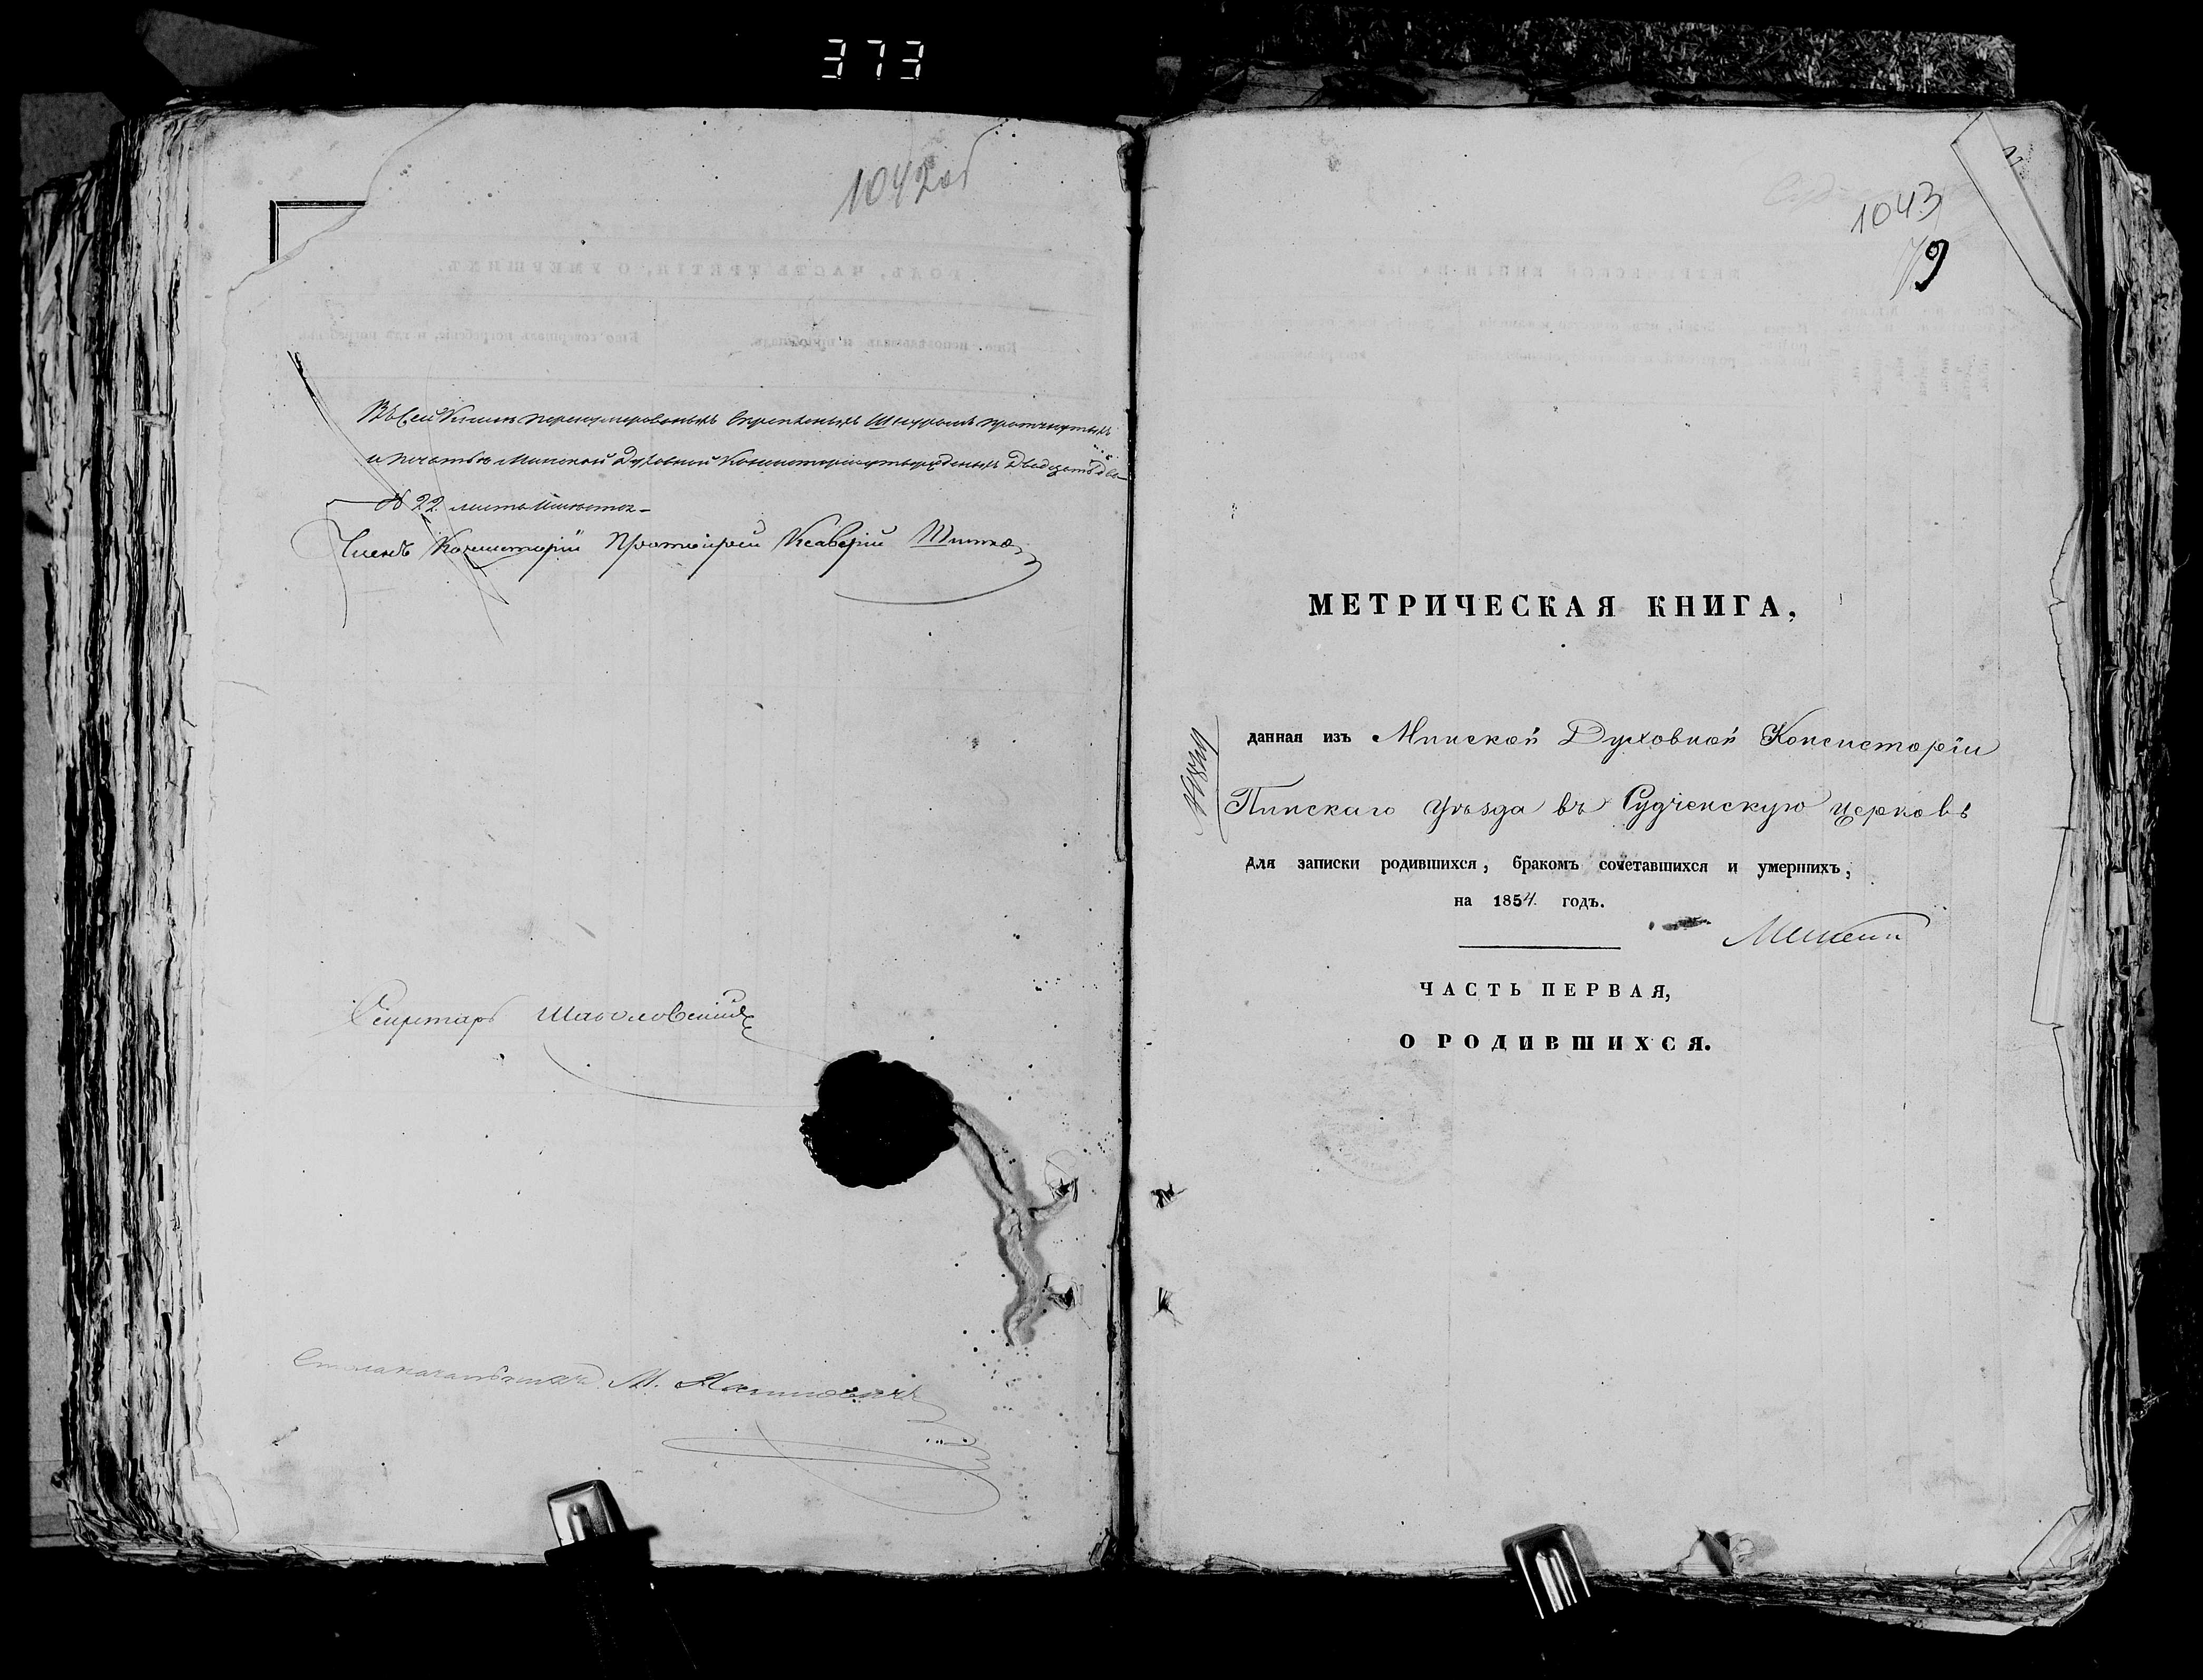 373
1042 об
Въ сей Книгѣ перенумерованныхъ скрѣпленныхъ шнуромъ протянутыхъ
и печатью Минской Духовной Консисторіи утвержденныхъ двадцать два
22 листа
Членъ Консисторіи Протоіерей Ксаверій
Секретарь
М.
1043
79
МЕТРИЧЕСКАЯ КНИГА,
данная изъ Минской Духовной Консисторіи
Пинскаго Уѣзда въ Судченскую церковь
для записки родившихся, бракомъ сочетавшихся и умершихъ,
на 1854 годъ.
ЧАСТЬ ПЕРВАЯ,
О РОДИВШИХСЯ.